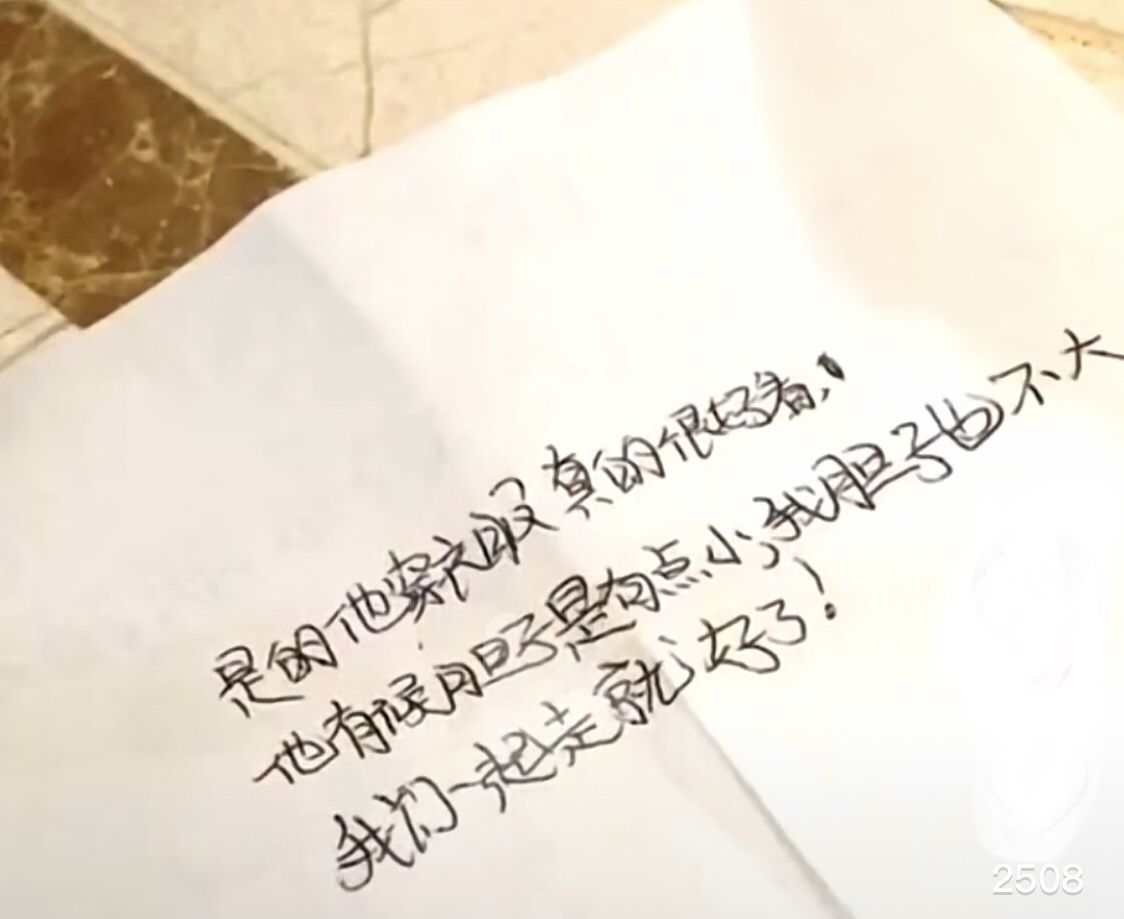 是的他穿衣服真的很好看，
他有候胆子是有点小，我胆子也不大
我们一起走就好了！
2508